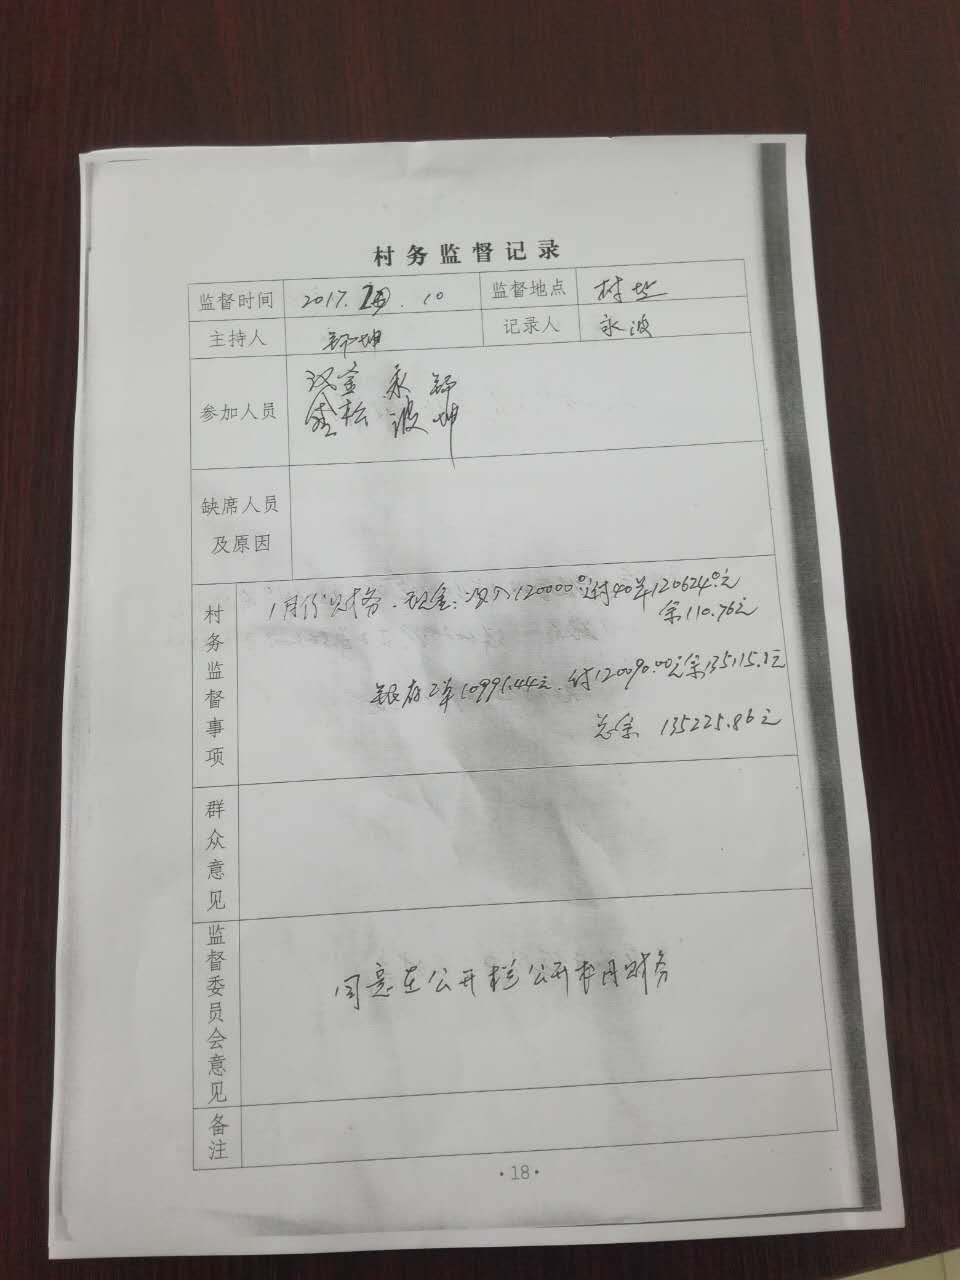 村务监督记录
监督时间 2017. .10 监督地点 村
主持人 郑坤 记录人 永波
参加人员 汉 金 永 郑
松 波 坤
缺席人员
及原因
村务监督事项 1月份财务.现金:收入120000.⁰付40单120624.⁰元
余110.76元
银存2单10991.44元.付120090.00元余135115.1元
总余 135225.86元
群众意见
监督委员会意见 同意在公开栏公开本月财务
备注
·18·